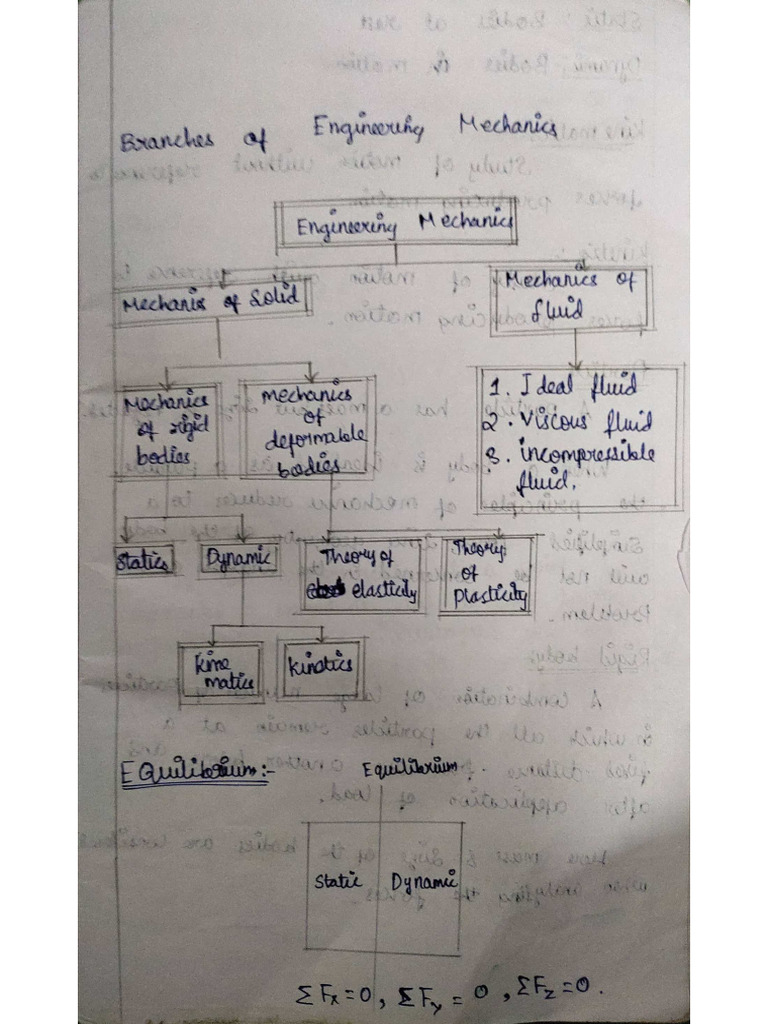 Branches of Engineering Mechanics
Engineering Mechanics
Mechanis of Solid
Mechanics of
fluid
Mechanics
of rigid
bodies
mechanics
of
deformable
bodies
1. Ideal fluid
2. Viscous fluid
3. incompressible
fluid.
Statics
Dynamic
Theory of
elasticity
Theory
of
Plasticity
kine
matics
kinetics
EQuilibrium:-
Equilibrium.
Static
Dynamic
ΣFx=0, ΣFy=0, ΣFz=0.